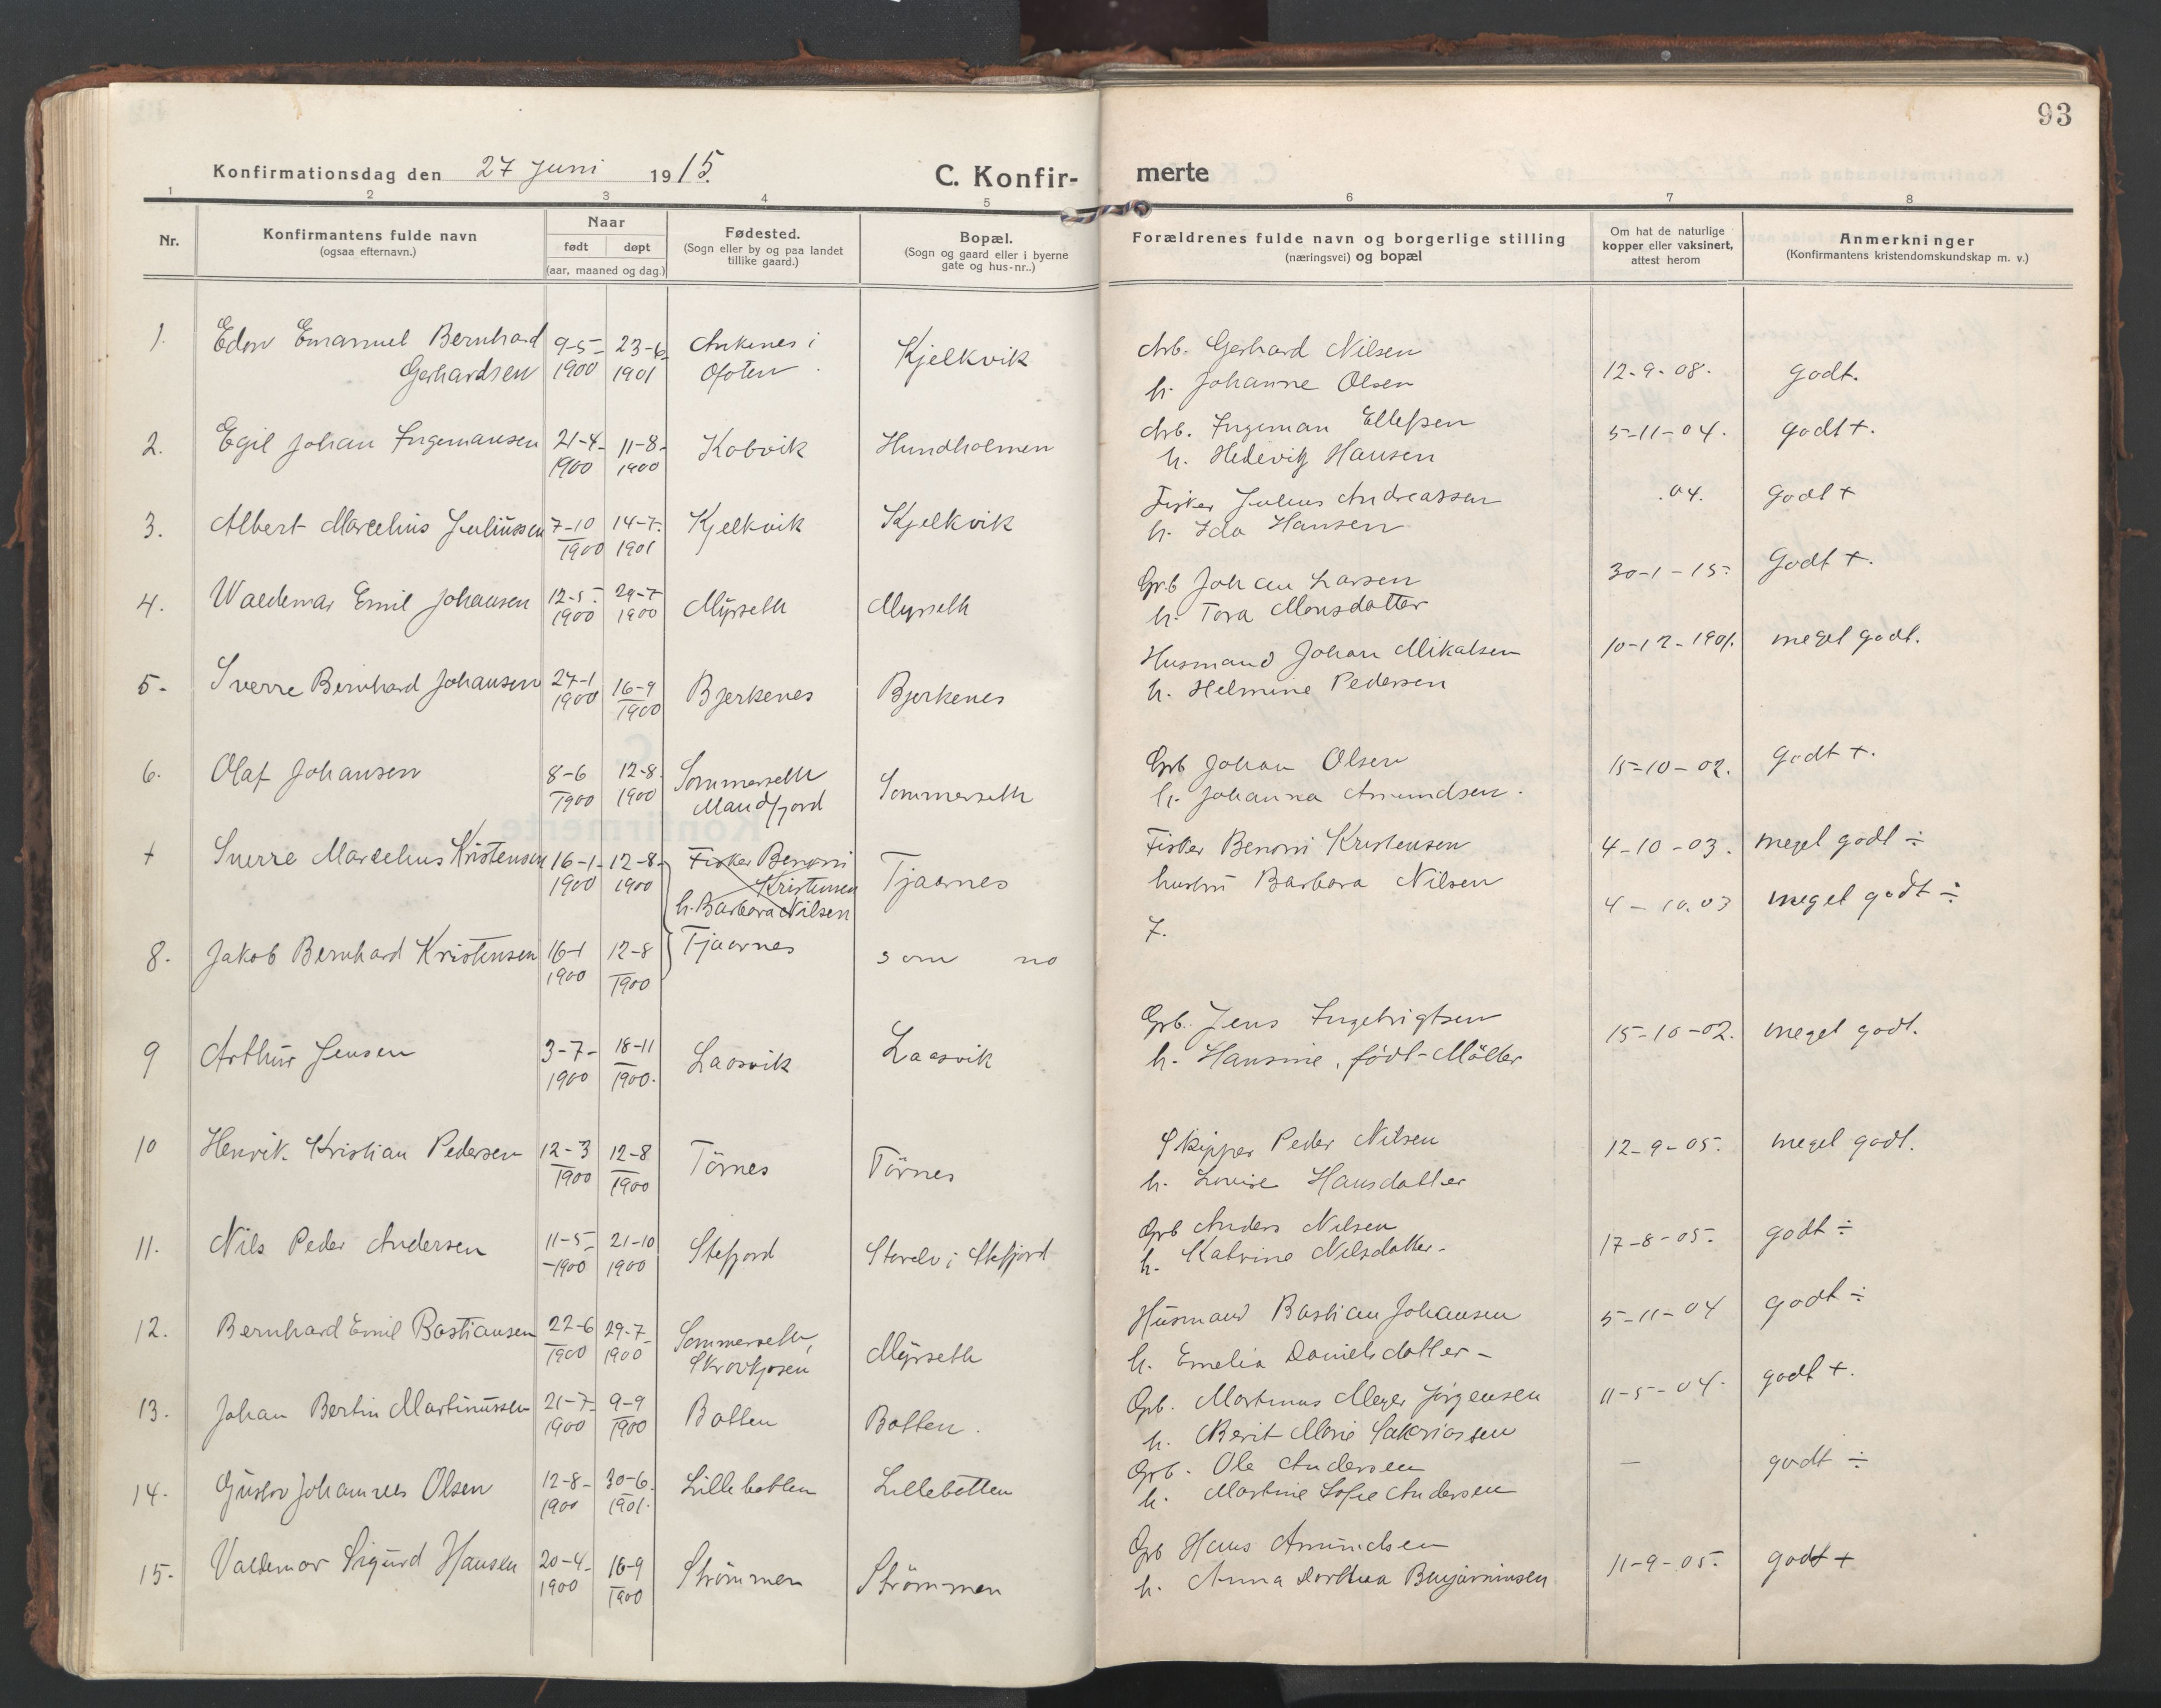 93
Konfirmationsdag den 27 Juni 1915. C. Konfir- merte
1 2 3 4 5 6 7 8
Nr.
Konfirmantens fulde navn
(ogsaa efternavn.)
Naar
født døpt
(aar, maaned og dag.)
Fødested.
(Sogn eller by og paa landet
tillike gaard.)
Bopæl.
(Sogn og gaard eller i byerne
gate og hus-nr..)
Forældrenes fulde navn og borgerlige stilling
(næringsvei) og bopæl
Om hat de naturlige
kopper eller vaksinert,
attest herom
Anmerkninger
(Konfirmantens kristendomskundskap m. v.)
1. Edon Emanuel Bernhard 9-5- 23-6 Ankenes i Kjelkvik Arb. Gerhard Nilsen 12-9-08. godt.
Gerhardsen 1900 1901 Ofoten h. Johanne Olsen
2. Egil Johan Ingemansen 21-4- 11-8- Kobvik Hundholmen Arb. Ingeman Ellefsen 5-11-04. godt +.
1900 1900 h. Hedevig Hansen
3. Albert Marcelius Juliussen 7-10 14-7- Kjelkvik Kjelkvik Fisker Julius Andreassen .04. godt +
1900 1901 h. Ida Hansen
4. Waldemar Emil Johansen 12-5- 29-7 Myrseth Myrseth Grb Johan Larsen 30-1-15- Godt +.
1900 1900 h. Tora Monsdatter
5- Sverre Bernhard Johansen 27-1 16-9 Bjerkenes Bjerkenes Husmand Johan Mikalsen 10-12-1901. meget godt.
1900 1900 h. Helmine Pedersen
6. Olaf Johansen 8-6 12-8. Sommerseth Sommerseth Grb Johan Olsen 15-10-02. godt +.
1900 1900 Mandfjord h. Johanna Amundsen.
7 Sverre Marcelius Kristensen 16-1- 12-8- Fisker Benoni Tjaarnes Fisker Benoni Kristensen 4-10-03. meget godt ÷
1900 1900 Kristensen hustru Barbara Nilsen
h. Barbara Nilsen
8. Jakob Bernhard Kristensen 16-1 12-8 Tjaarnes som no 7. 4-10.03 meget godt ÷
1900 1900
9 Arthur Jensen 3-7- 18-11 Laasvik Laasvik Grb. Jens Ingebrigtsen 15-10-02. meget godt.
1900 1900. h. Hansine, født Möller
10 Henrik Kristian Pedersen 12-3 12-8 Törnes Törnes Skipper Peder Nilsen 12-9-05. meget godt.
1900 1900 h. Lovise Hansdatter
11. Nils Peder Andersen 11-5- 21-10 Stefjord Storelv i Stefjord Grb Anders Nilsen 17-8-05. godt ÷
1900 1900 h. Katrine Nilsdatter-
12. Bernhard Emil Bastiansen 22-6 29-7- Sommerseth, Myrseth Husmand Bastian Johansen 5-11-04 godt ÷
1900 1900 Skrovkjosen h. Emelia Danielsdatter-
13. Johan Bertin Martinussen 21-7- 9-9 Botten Botten. Grb. Martinus Meyer Jörgensen 11-5-04. godt +.
1900 1900 h. Berit Marie Sakriassen
14. Gustav Johannes Olsen 12-8- 30-6. Lillebotten Lillebotten Grb. Ole Andersen — godt ÷
1900 1901. h. Martine Sofie Andersen
15- Valdemar Sigurd Hansen 20-4- 16-9 Strömmen Strömmen Grb Hans Amundsen 11-9-05. godt +
1900 1900 h. Anna Dorthea Benjaminsen